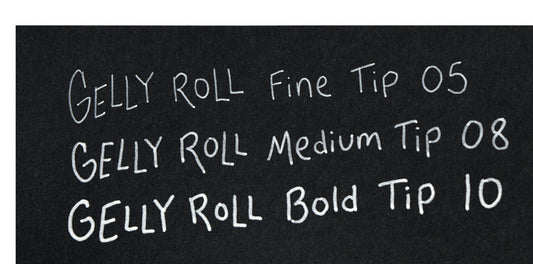 GELLY ROLL Fine Tip 05
GELLY ROLL Medium Tip 08
GELLY ROLL Bold Tip 10